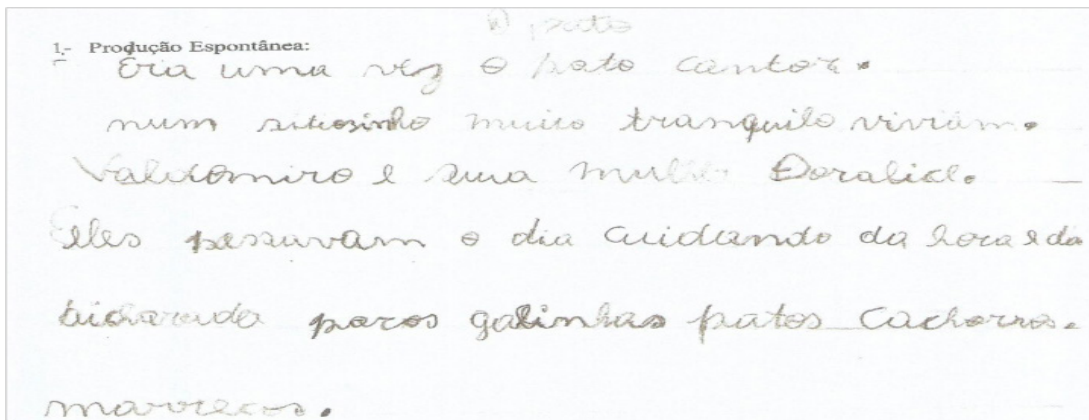 O pato
1.- Produção Espontânea:
Era uma vez o pato cantor.
num sitiosinho muito tranquilo viviam.
Valdomiro e sua mulher Dorabiel.
Eles passavam o dia cuidando da hora e da
bicharada poros galinhas patos cachorros.
marrecos.